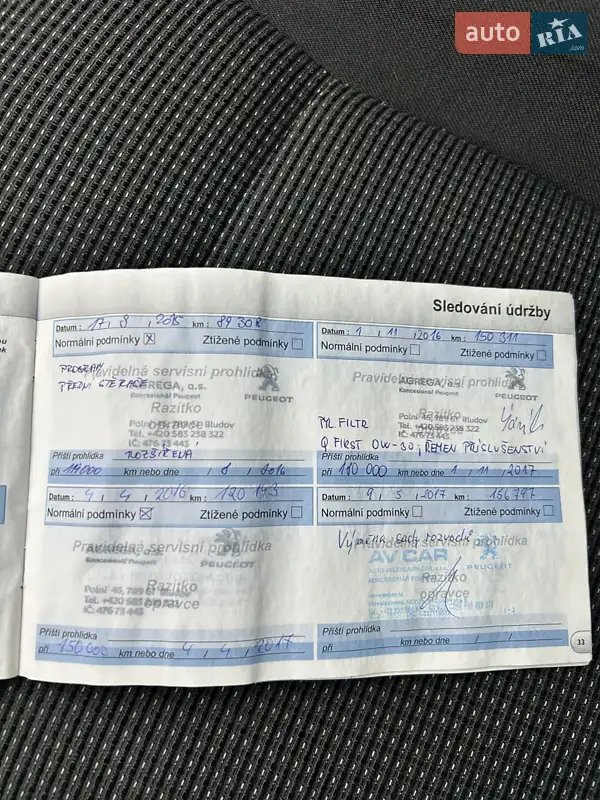 auto RIA .com
Sledování údržby
Datum : 17 , 8 , 2015 km : 89308
Normální podmínky X Ztížené podmínky
PROGRAM
PŘEDNÍ STĚRAČE
Pravidelná servisní prohlídka
AGREGA, a.s.
Koncesionář Peugeot
PEUGEOT
Razítko
Polní 45, 789 61 Bludov
Tel. +420 583 238 322
IČ: 476 73 443
ROZŠÍŘENÁ
Příští prohlídka
při km nebo dne , 8 , 2016
Datum : 1 , 11 , 2016 km : 150 311
Normální podmínky Ztížené podmínky
Pravidelná servisní prohlídka
AGREGA, a.s.
Koncesionář Peugeot
PEUGEOT
Razítko
Polní 45, 789 61 Bludov
Tel. +420 583 238 322
IČ: 476 73 443
PYL. FILTR
Q FIRST 0W-30, ŘEMEN PŘÍSLUŠENSTVÍ
Příští prohlídka
při 180 000 km nebo dne 1 , 11 , 2017
Datum : 4 , 4 , 2016 km : 120 143
Normální podmínky X Ztížené podmínky
Pravidelná servisní prohlídka
AGREGA, a.s.
Koncesionář Peugeot
PEUGEOT
Razítko
opravce
IČ: 476 73 443
Příští prohlídka
při 150 000 km nebo dne 4 , 4 , 2017
Datum : 9 , 5 , 2017 km : 156 797
Normální podmínky Ztížené podmínky
Výměna sady rozvodů
Pravidelná servisní prohlídka
AV CAR
PEUGEOT
Razítko
opravce
Příští prohlídka
při km nebo dne / /
33